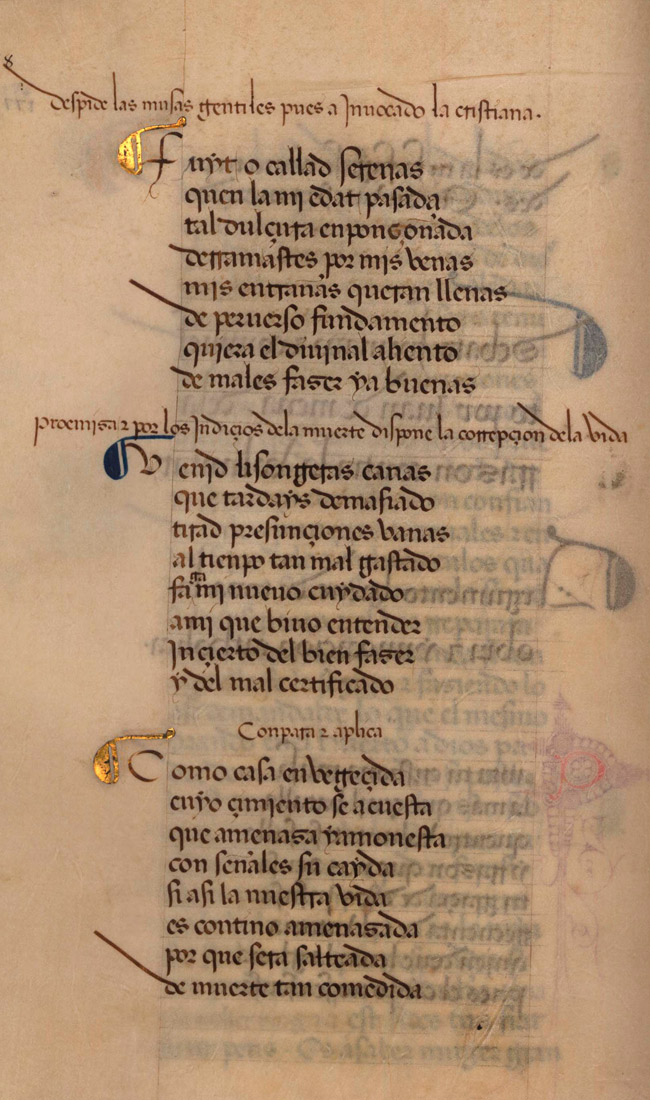 despide las musas gentiles pues a Jnuocado la cristiana.
Fuyt o callad serenas
quen la mi edat pasada
tal dulçura enponçonada
derramastes por mis venas
mis entranas queran llenas
de peruerso fundamento
quiera el diuinal aliento
de males faser ya buenas
proemisa 2 por los Jndiçios dela muerte dispone la correpçion dela vida
Venid lisongeras canas
que tardays demasiado
tirad presunçiones vanas
al tienpo tan mal gastado
mi nueuo cuydado
ami que biuo entender
Jnçierto del bien faser
y del mal certificado
Conpara 2 aplica
Como casa envegeçida
cuyo çimiento se acuesta
que amenasa yamonesta
con senales su cayda
si asi la nuestra vida
es contino amenasada
por que sera salteada
de muerte tan comedida